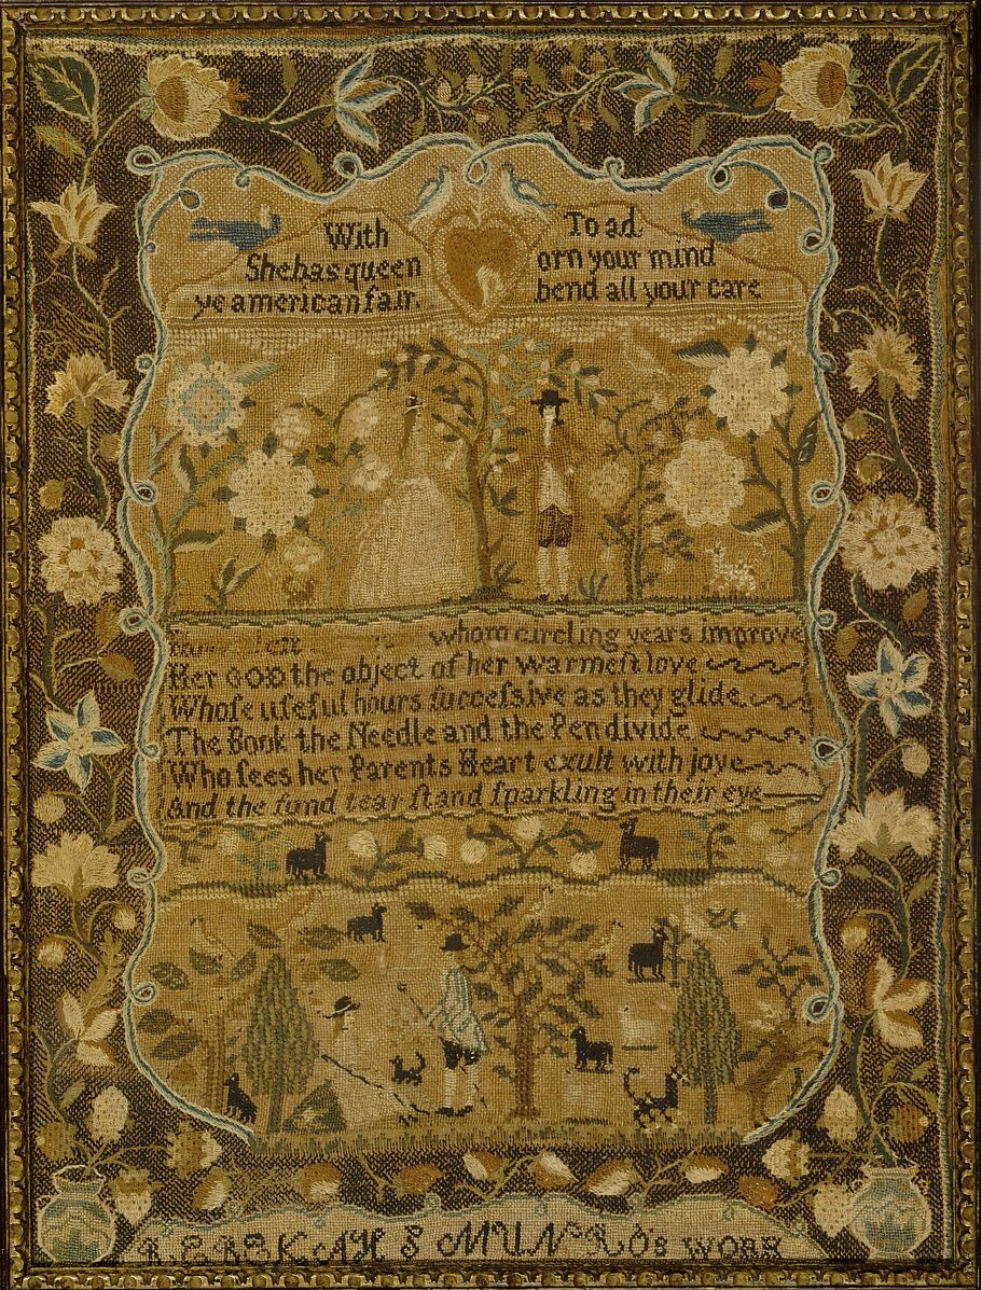 With
Shebas queen
ye american fair.
To ad
orn your mind
bend all your care
whom circling years improve
Her GOD the object of her warmeſt love
Whoſe uſeful hours ſucceſsive as they glide
The Book the Needle and the Pen divide
Who ſees her Parents Heart exult with joye
And the fond tear ſtand ſparkling in their eye
REBEKAH S MUNRO'S WORK